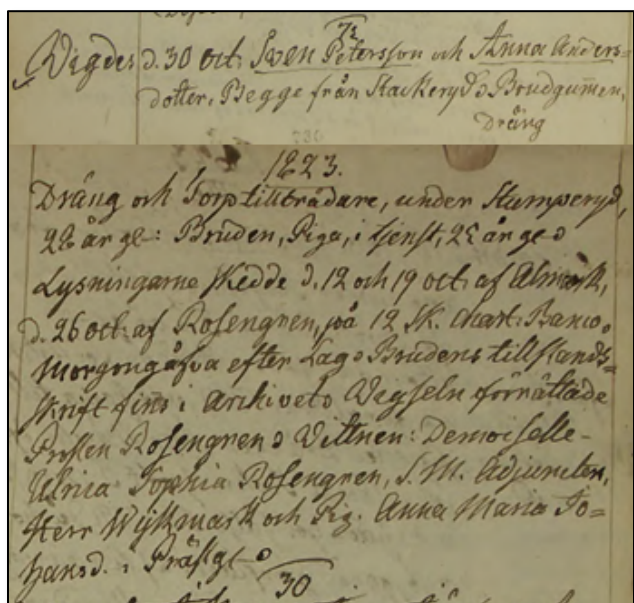 Wigdes d. 30 oct: Swen Petersson och Anna Anders=
dotter, Begge från Stackeryd. Brudgumen,
Dräng
1823.
Dräng och Torptillträdare, under Stumperyd,
22 år gl: Bruden, Piga, i tjenst, 25 år gl
Lysningarne skedde d. 12 och 19 oct: af
d. 26 oct: af Rosengren, på 12 sk. chart: Banco.
Morgongåfva efter Lag. Brudens tillstånds=
skrift fins i Archivet. Wigseln förrättade
Prosten Rosengren. Vittnen: Demoiselle
Ulrica Sophia Rosengren, S. M. Adjuncten,
Herr Wijkmark och Pig. Anna Maria Jo=
hansd. i Prästg
30